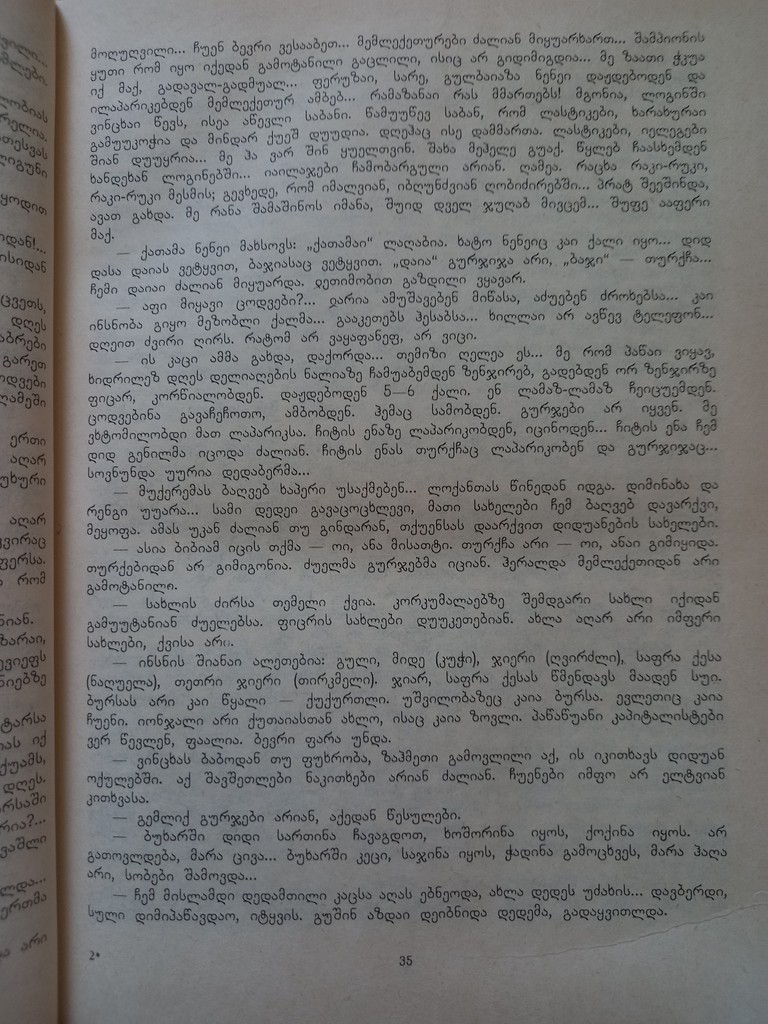 მოღუღვილი... ჩუენ ბევრი ვესააბეთ... მემლექეთურები ძალიან მიყუარხართ... შამპიონის
ყუთი რომ იყო იქედან გამოტანილი გაცლილი, ისიც არ გიდიმიგდია... მე ზაათი ჭკუა
იქ მაქ, გადავალ-გადმუალ... ფერუზაი, სარე, გულბაიაზა ნენეი დაჟდებოდენ და
ილაპარიკებდენ მემლექეთურ ამბებ... რამაზანაი რას მმართებს! მგონია, ლოგინში
ვინცხაი წევს, ისეა აწევლი საბანი. წამუუწევ საბან, რომ ლასტიკები, ხარახურაი
გამუუკოჭია და მინდარ ქუეშ დუუდია. დღეჰაც ისე დამმართა. ლასტიკები, იელეგები
შიან დუუყრია... მე ჰა ვარ შინ ყუელთვინ. შახა მეჰელე გუაქ. წყლებ ჩაასხემდენ
ხანდეხან ლოგინებში... იაილაჯები ჩამობარგული არიან. ღამეა. რაცხა რაკი-რუკი,
რაკი-რუკი მესმის; გევხედე, რომ იმალვიან, იბღუნძვიან ღობიძირებში... პრატ შეეშინდა,
ავათ გახდა. მე რანა შამაშინოს იმანა, შუიდ დველ ჯუღაბ მივცემ... შუფე ააფერი
მაქ.
— ქათამა ნენეი მახსოვს: „ქათამაი“ ლაღაბია. ხატო ნენეიც კაი ქალი იყო... დიდ
დასა დაიას ვეტყვით, ბაჯიასაც ვეტყვით. „დაია“ გურჯიჯა არი, „ბაჯი“ — თურქჩა...
ჩემი დაიაი ძალიან მიყუარდა. ჲეთიმობით გაზდილი ვყავარ.
— აფი მიყავი ცოდვები?... ჲარია ამუშავებენ მიწასა, აძუებენ ძროხებსა... კაი
ინსნობა გიყო მეზობლი ქალმა... გააკეთებს ჰესაბსა... ხილლაი არ ავწევ ტელეფონ...
დღეით ძვირი ღირს. რატომ არ ვაყაფანეფ, არ ვიცი.
— ის კაცი ამმა გახდა, დაქორდა... თემიზი ღელეა ეს... მე რომ პაწაი ვიყავ,
ხიდრილეზ დღეს დელიაღების ნალიაზე ჩამუაბემდენ ზენჯირებ, გადებდენ ორ ზენჯირზე
ფიცარ, კორწიალობდენ. დაჟდებოდენ 5—6 ქალი. ენ ლამაზ-ლამაზ ჩეიცუემდენ.
ცოდვებინა გავაჩეჩოთო, ამბობდენ. ჰემაც სამობდენ. გურჯები არ იყვენ. მე
ვხტომილობდი მათ ლაპარიკსა. ჩიტის ენაზე ლაპარიკობდენ, იცინოდენ... ჩიტის ენა ჩემ
დიდ გენილმა იცოდა ძალიან. ჩიტის ენას თურქჩაც ლაპარიკობენ და გურჯიჯაც...
სოვნუნდა უურია დედაბერმა...
— მუქერემას ბაღვებ ხაპერი უსაქმებენ... ლოქანთას წინედან იდგა. დიმინახა და
რენგი უუარა... სამი დედეი გავაცოცხლევი, მათი სახელები ჩემ ბაღვებ დავარქვი,
მეყოფა. ამას უკან ძალიან თუ გინდარან, თქუენსას დაარქვით დიდუანების სახელები.
— ასია ბიბიამ იცის თქმა — ოი, ანა მისათტი. თურქჩა არი — ოი, ანაი გიმიყიდა.
თურქებიდან არ გიმიგონია. ძუელმა გურჯებმა იციან. ჰერალდა მემლექეთიდან არი
გამოტანილი.
— სახლის ძირსა თემელი ქვია. კორკუმალაებზე შემდგარი სახლი იქიდან
გამუუტანიან ძუელებსა. ფიცრის სახლები დუუკეთებიან. ახლა აღარ არი იმფერი
სახლები, ქვისა არი.
— ინსნის შიანაი ალეთებია: გული, მიდე (კუჭი), ჯიერი (ღვირძლი), საფრა ქესა
(ნაღუელა), თეთრი ჯიერი (თირკმელი). ჯიარ, საფრა ქესას წმენდავს მაადენ სუი.
ბურსას არი კაი წყალი — ქუქურთლი. უშვილობაზეც კაია ბურსა. ევლეთიც კაია
ჩუენი. იონჯალი არი ქუთაიასთან ახლო, ისაც კაია ზოვლი. პაწაწუანი კაპიტალისტები
ვერ წევლენ, ფაალია. ბევრი ფარა უნდა.
— ვინცხას ბაბოდან თუ ფუხრობა, ზაჰმეთი გამოვლილი აქ, ის იკითხავს დიდუან
ოქულებში. აქ შავშეთლები ნაკითხები არიან ძალიან. ჩუენები იმფო არ ელტვიან
კითხვასა.
— გემლიქ გურჯები არიან, აქედან წესულები.
— ბუხარში დიდი სართინა ჩავაგდოთ, ხოშორინა იყოს, ქოქინა იყოს. არ
გათოვლდება, მარა ცივა... ბუხარში კეცი, საჯინა იყოს, ჭადინა გამოცხვეს, მარა ჰაღა
არი, სობები შამოვდა...
— ჩემ მისლამდი დედამთილი კაცსა აღას ებნეოდა, ახლა დედეს უძახის... დავბერდი,
სული დიმიპაწავდაო, იტყვის. გუშინ აზდაი დეიბნიდა დედემა, გადაყვითლდა.
2*
35